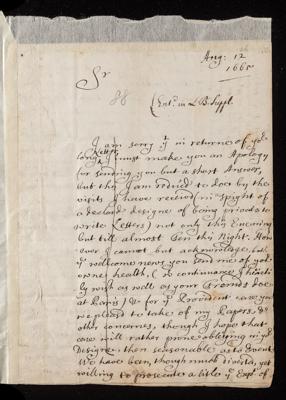 Aug: 12
1665
Sr
88
(Entd. in L B. Suppl.
I am sorry yt in returne of yor
long Letter I must make you an Apology
for sending you but a short Answer,
but tho I am reduc'd to doe it by the
visits I have receiv'd in spight of
a seeland designe of being private to
write Letters) not only this Evening
but till almost Ten this Night. How
ever I cannot but acknowledge both
ye wellcome news you send me of yor
owne health, (ye continuance I heartily
wish as well as your Friends doe
at Paris) & for ye Provident care you
are pleasd to take of my Papers &
other concernes, though I hope that
care will rather prove obleging in ye
Designe, then seasonable as to Event.
We have been, though much visited, yet
willing to prosecute a little ye Expts. of